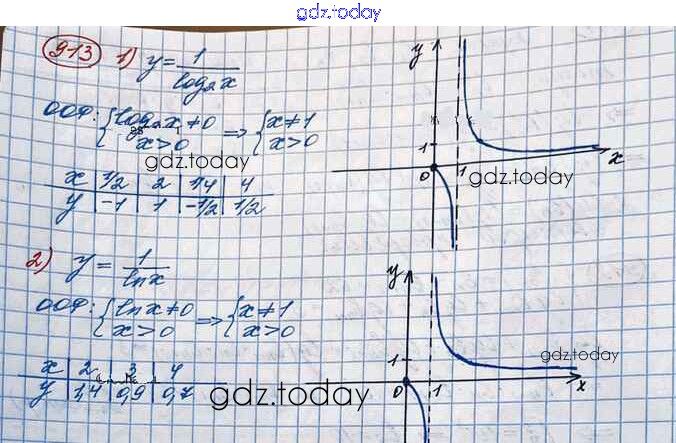 gdz.today
913 1) y = 1/log₂x
ООФ: {log₂x ≠ 0 x > 0 => {x ≠ 1 x > 0
gdz.today
x | 1/2 | 2 | 1/4 | 4
y | -1 | 1 | -1/2 | 1/2
y
1
0 1 x
gdz.today
2) y = 1/lnx
ООФ: {lnx ≠ 0 x > 0 => {x ≠ 1 x > 0
x | 2 | 3 | 4
y | 1,4 | 0,9 | 0,7
gdz.today
y
1
0 1 x
gdz.today